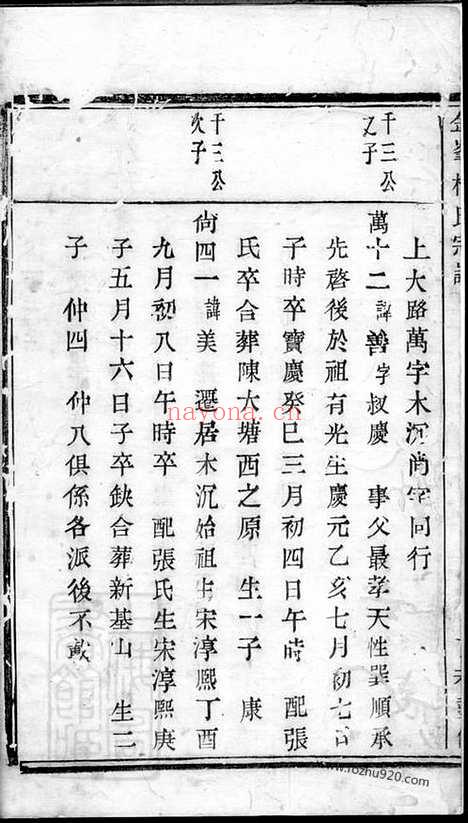 上大路萬字木沉尚字同行
干三公
又子
萬十二諱善字叔慶 事父最孝天性巽順承
先啓後於祖有光生慶元乙亥七月初七日
子時卒寶慶癸巳三月初四日午時 配張
氏卒合葬陳大塘西之原 生一子 康
干三公
次子
尚四一諱美 遷居木沉始祖生宋淳熙丁酉
九月初八日午時卒 配張氏生宋淳熙庚
子五月十六日子卒缺合葬新基山 生二
子 仲四 仲八俱係各派後不載
nayona.cn
www.rozhu920.com